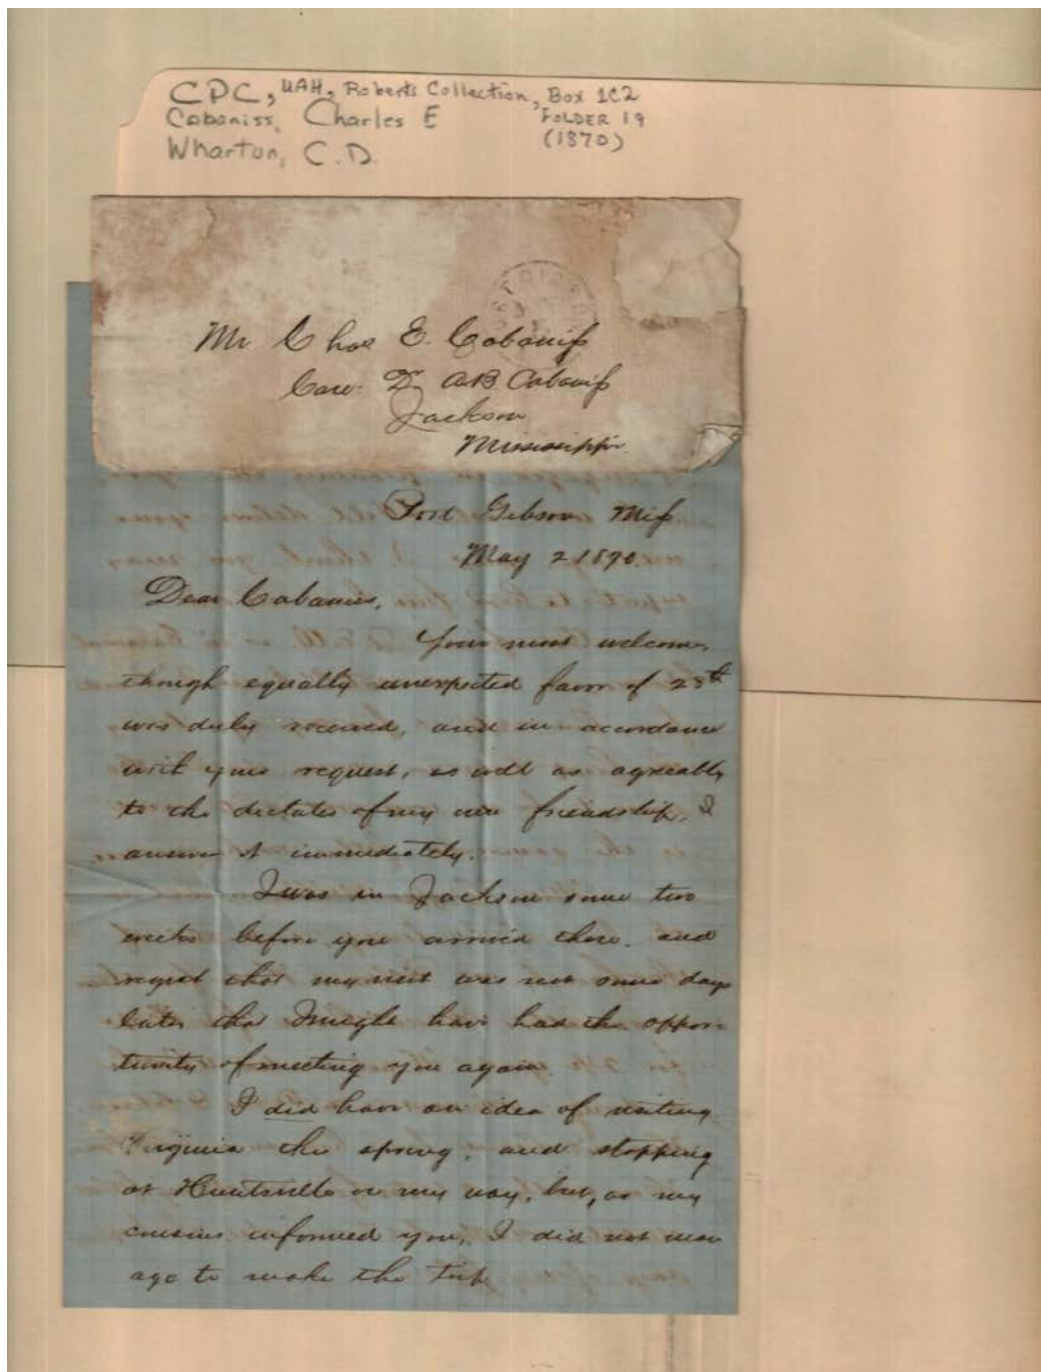 CPC, UAH, Roberts Collection, Box 1C2
Cabaniss, Charles E FOLDER 19
Wharton, C.D. (1870)
Mr Chas E. Cabaniss
Care Dr AB Cabaniss
Jackson
Mississippi
Port Gibson Miss
May 2 1870.
Dear Cabaniss,
Your most welcome,
though equally unexpected favor of 28th
was duly received, and in accordance
with your request, as well as agreeably
to the dictates of my own friendship, I
answer it immediately.
I was in Jackson some two
weeks before you arrived there, and
regret that my visit was not some days
later that I might have had the oppor-
tunity of meeting you again.
I did have an idea of visiting
Virginia this spring, and stopping
at Huntsville on my way, but, as my
cousins informed you, I did not man
age to make the trip